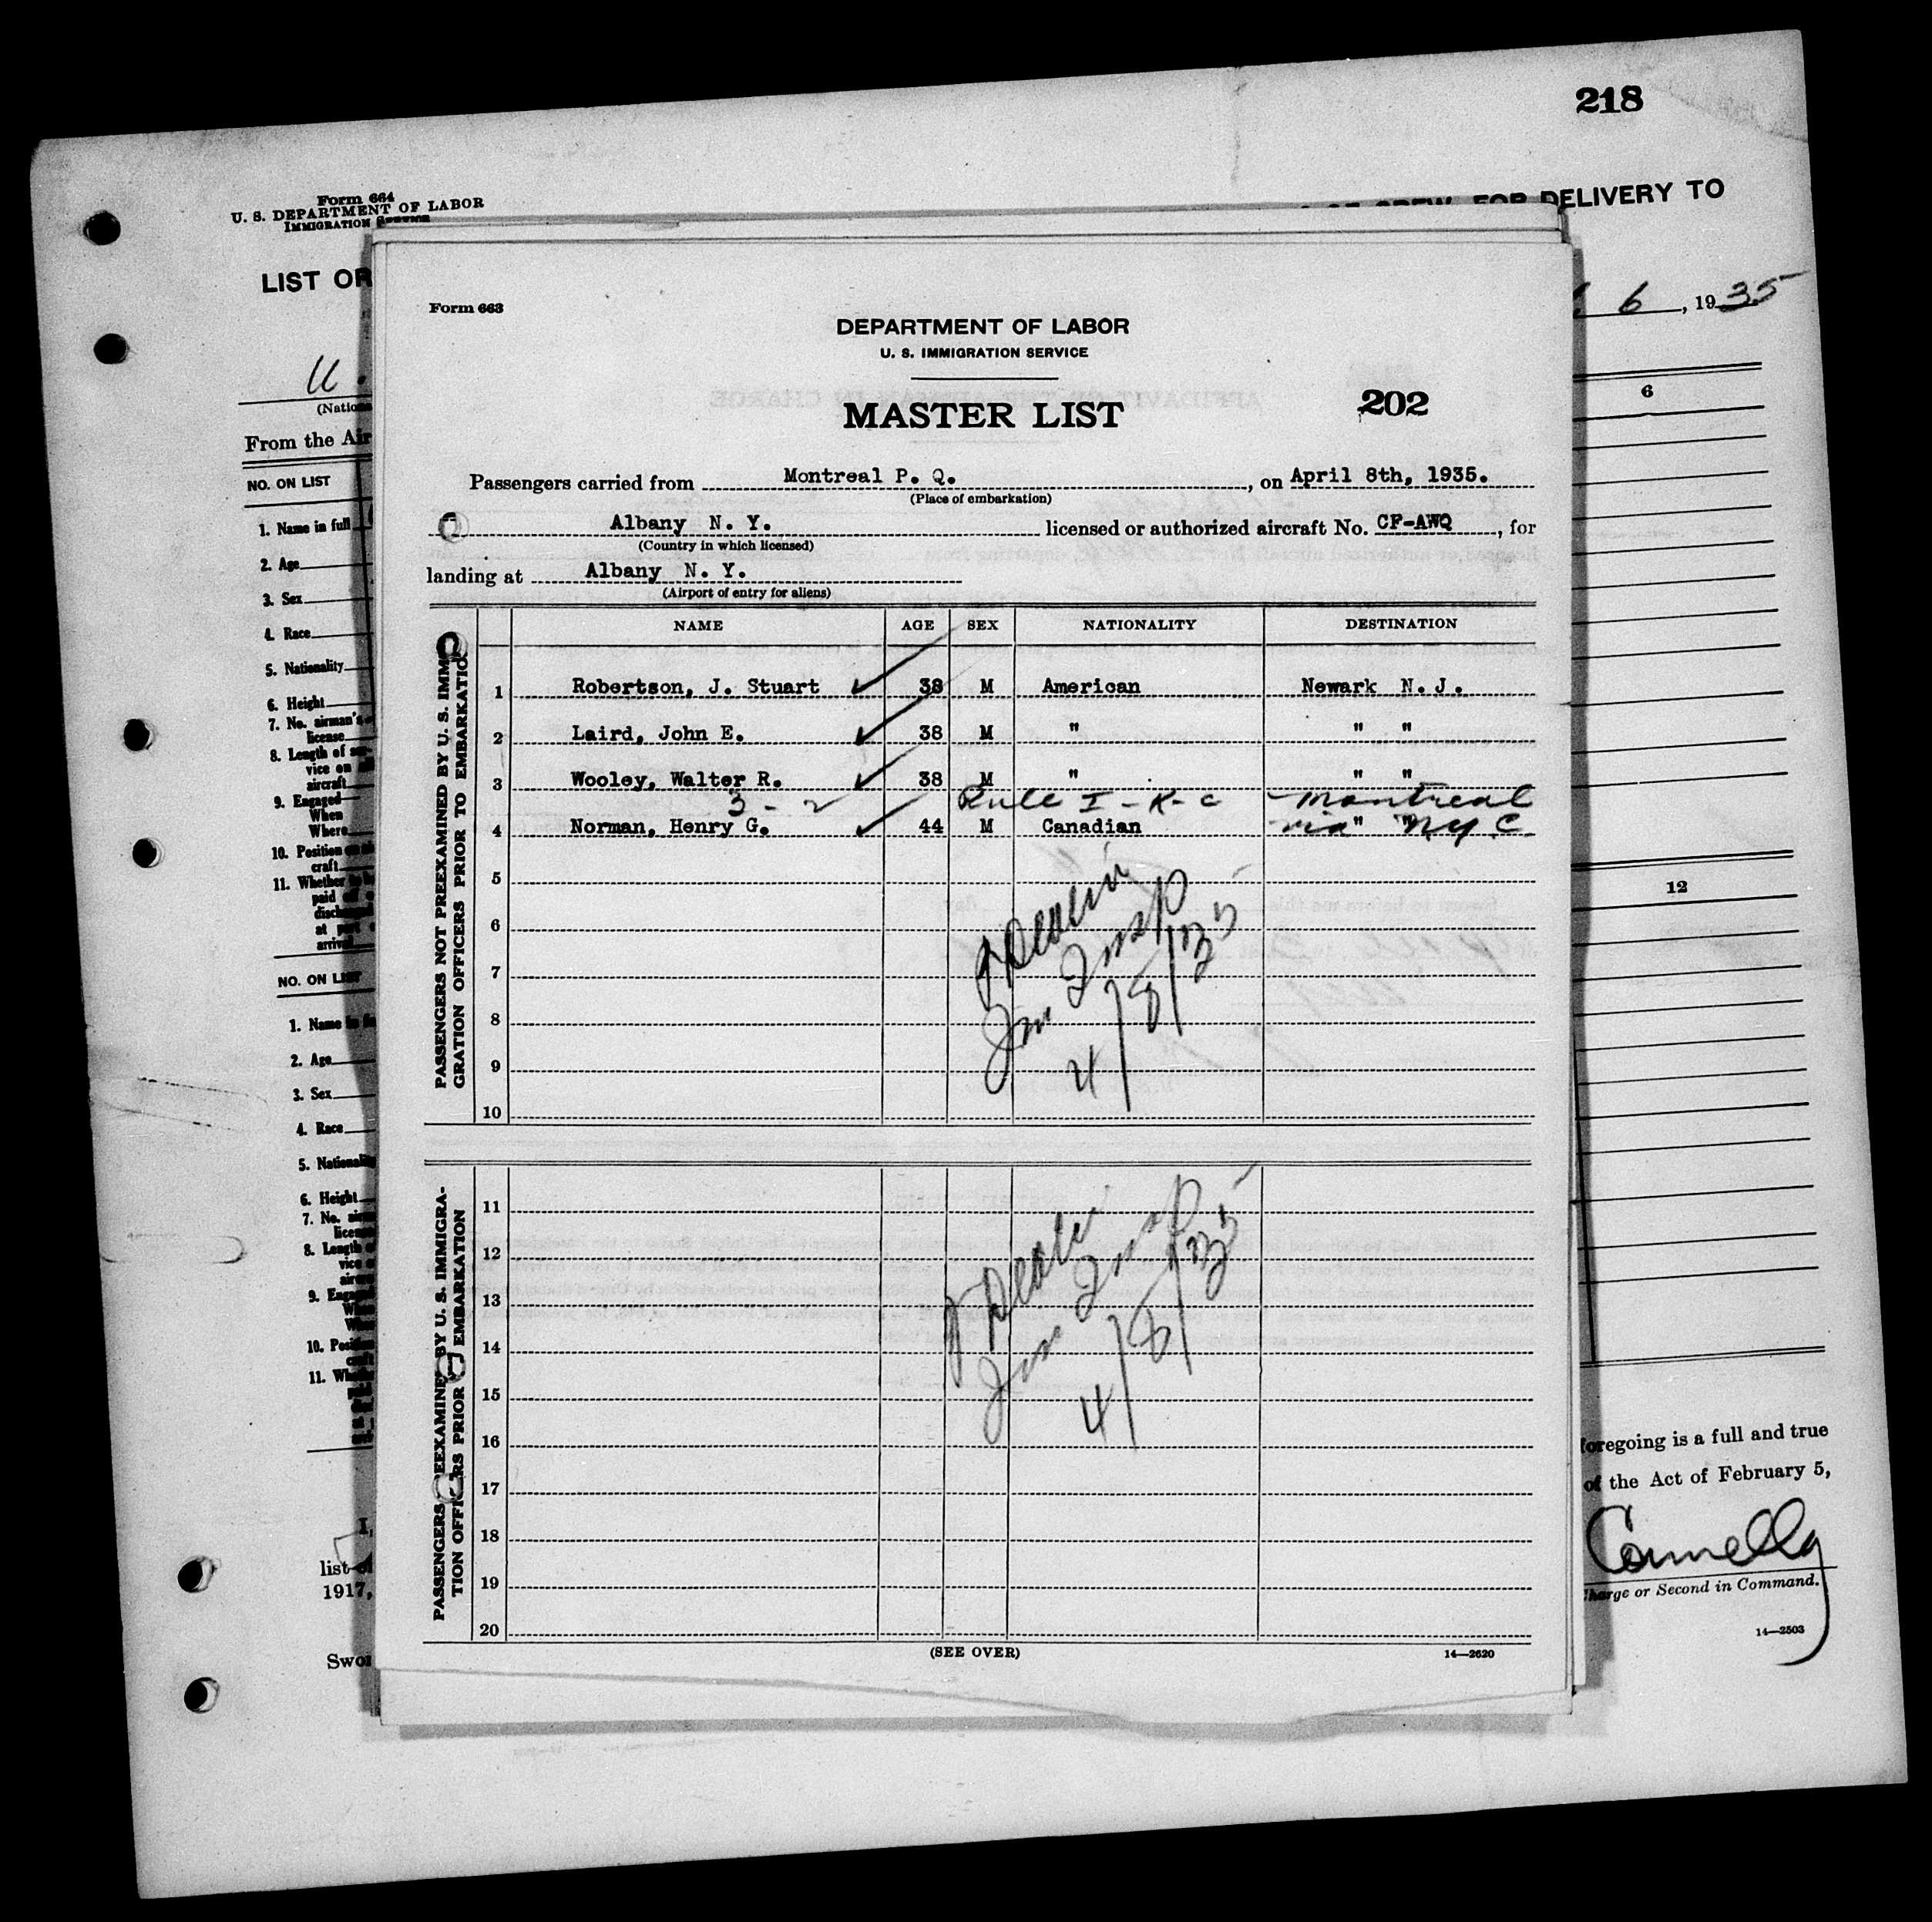 218
Form 664
U. S. DEPARTMENT OF LABOR
IMMIGRATION SERVICE
DELIVERY TO
LIST OR
6, 1935
U.
(Natio
From the Air
NO. ON LIST
6
1. Name in full
2. Age
3. Sex
4. Race
5. Nationality
6. Height
7. No. airman's
license
8. Length of
vice on
aircraft
9. Engaged
When
Where
10. Position
craft
11. Whether
paid
at
12
NO. ON LIST
1. Name
2. Age
3. Sex
4. Race
5. Nationality
6. Height
7. No.
8. Length
vice
9.
10.
11.
foregoing is a full and true
of the Act of February 5,
I,
list
1917,
Connelly
Charge or Second in Command.
14—2503
Swor
Form 663
DEPARTMENT OF LABOR
U. S. IMMIGRATION SERVICE
MASTER LIST
202
Passengers carried from Montreal P. Q., on April 8th, 1935.
(Place of embarkation)
Albany N. Y. licensed or authorized aircraft No. CF-AWQ, for
(Country in which licensed)
landing at Albany N. Y.
(Airport of entry for aliens)
NAME AGE SEX NATIONALITY DESTINATION
PASSENGERS NOT PREEXAMINED BY U. S. IMMI
GRATION OFFICERS PRIOR TO EMBARKATIO
1 Robertson, J. Stuart 38 M American Newark N.J.
2 Laird, John E. 38 M " " "
3 Wooley, Walter R. 38 M " " "
3 - 2 Rule I - K - c Montreal
4 Norman, Henry G. 44 M Canadian via " " NYC
5
6
7
8
9
10
Imm Insp
4/8/35
PASSENGERS REEXAMINE BY U. S. IMMIGRA-
TION OFFICERS PRIOR EMBARKATION
11
12
13
14
15
16
17
18
19
20
Imm Insp
4/8/35
(SEE OVER)
14—2620